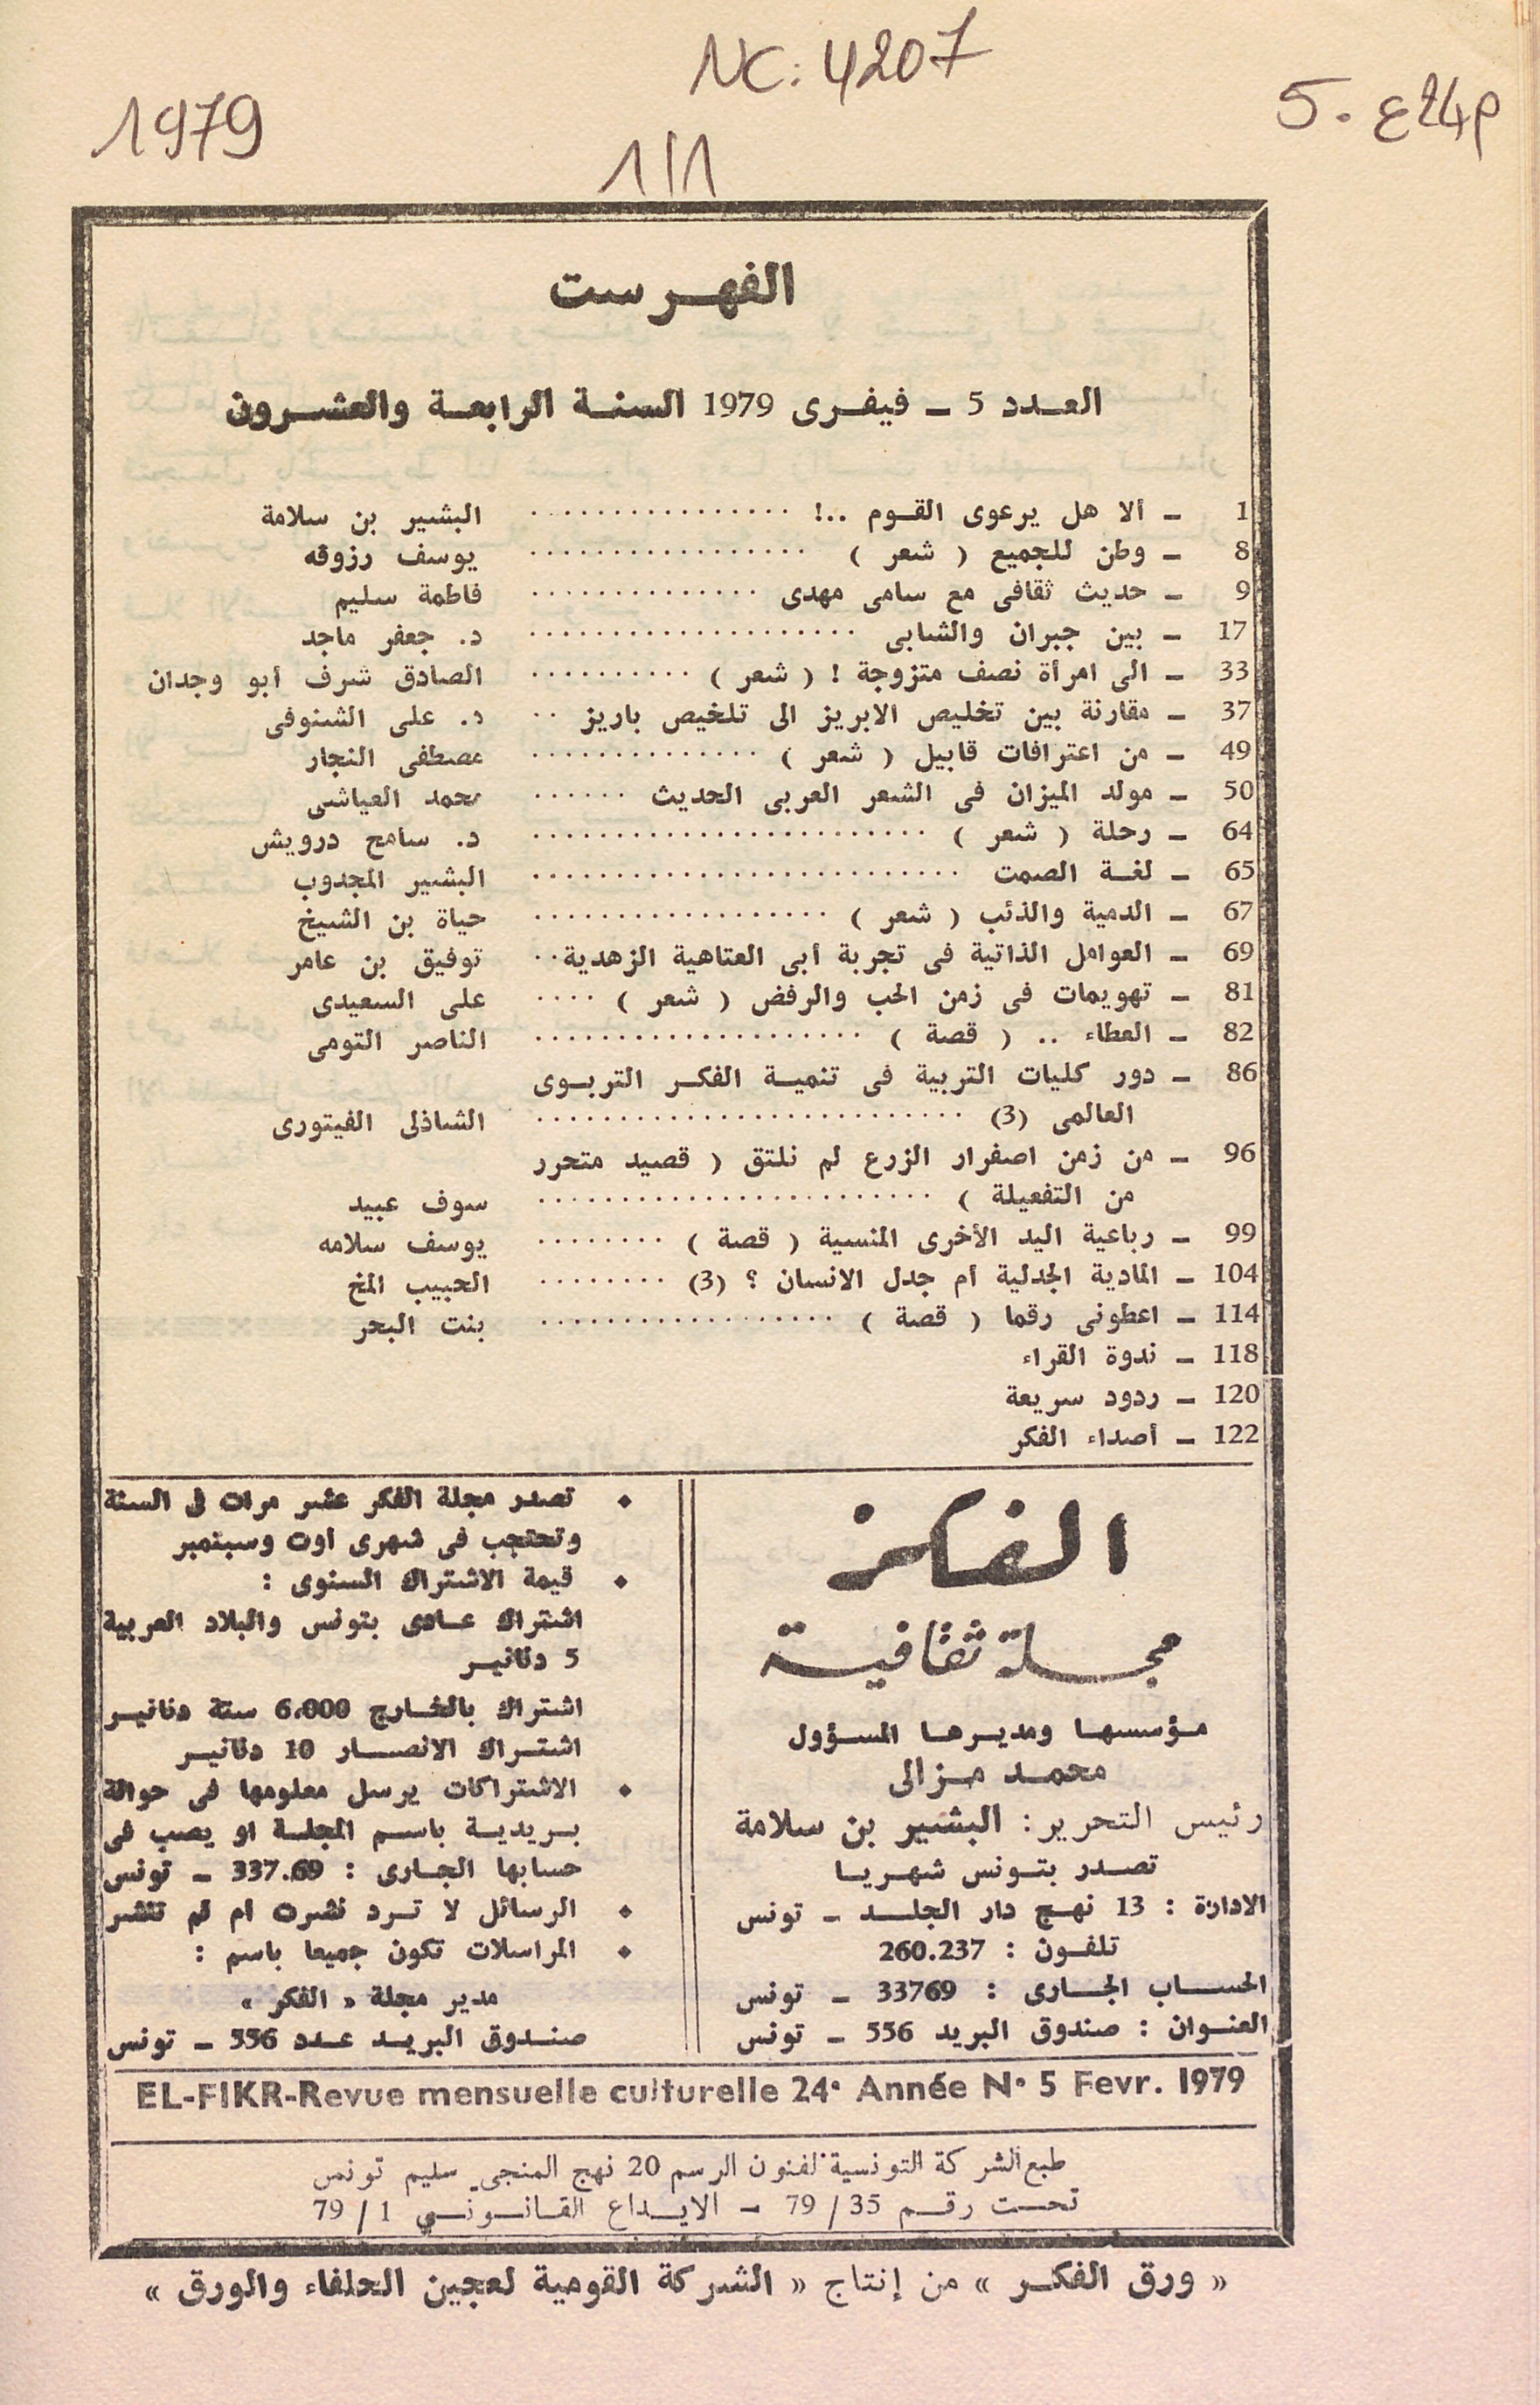 NC: 4207
1979
5. ع 24 م
1/1
الفهرست
العدد 5 ـ فيفرى 1979 السنة الرابعة والعشرون
1 ـ ألا هل يرعوى القوم ..! ................ البشير بن سلامة
8 ـ وطن للجميع ( شعر ) ................. يوسف رزوقه
9 ـ حديث ثقافى مع سامى مهدى .............. فاطمة سليم
17 ـ بين جبران والشابى .................... د. جعفر ماجد
33 ـ الى امرأة نصف متزوجة ! ( شعر ) .......... الصادق شرف أبو وجدان
37 ـ مقارنة بين تخليص الابريز الى تلخيص باريز .. د. على الشنوفى
49 ـ من اعترافات قابيل ( شعر ) .............. مصطفى النجار
50 ـ مولد الميزان فى الشعر العربى الحديث ...... محمد العياشى
64 ـ رحلة ( شعر ) ........................ د. سامح درويش
65 ـ لغة الصمت .......................... البشير المجدوب
67 ـ الدمية والذئب ( شعر ) .................. حياة بن الشيخ
69 ـ العوامل الذاتية فى تجربة أبى العتاهية الزهدية .. توفيق بن عامر
81 ـ تهويمات فى زمن الحب والرفض ( شعر ) .... على السعيدى
82 ـ العطاء .. ( قصة ) .................... الناصر التومى
86 ـ دور كليات التربية فى تنمية الفكر التربوى
العالمى (3) .......................... الشاذلى الفيتورى
96 ـ من زمن اصفرار الزرع لم نلتق ( قصيد متحرر
من التفعيلة ) ........................ سوف عبيد
99 ـ رباعية اليد الأخرى المنسية ( قصة ) ........ يوسف سلامه
104 ـ المادية الجدلية أم جدل الانسان ؟ (3) ........ الحبيب المخ
114 ـ اعطونى رقما ( قصة ) .................. بنت البحر
118 ـ ندوة القراء
120 ـ ردود سريعة
122 ـ أصداء الفكر
الفكر
مجلة ثقافية
مؤسسها ومديرها المسؤول
محمد مزالى
رئيس التحرير : البشير بن سلامة
تصدر بتونس شهريا
الادارة : 13 نهج دار الجلد ـ تونس
تلفون : 260.237
الحساب الجارى : 33769 ـ تونس
العنوان : صندوق البريد 556 ـ تونس
♦ تصدر مجلة الفكر عشر مرات فى السنة
وتحتجب فى شهرى اوت وسبتمبر
♦ قيمة الاشتراك السنوى :
اشتراك عادى بتونس والبلاد العربية
5 دنانير
اشتراك بالخارج 6.000 ستة دنانير
اشتراك الانصار 10 دنانير
♦ الاشتراكات يرسل معلومها فى حوالة
بريدية باسم المجلة او يصب فى
حسابها الجارى : 337.69 ـ تونس
♦ الرسائل لا ترد نشرت ام لم تنشر
♦ المراسلات تكون جميعا باسم :
مدير مجلة « الفكر »
صندوق البريد عدد 556 ـ تونس
EL-FIKR-Revue mensuelle culturelle 24e Année N° 5 Fevr. 1979
طبع الشركة التونسية لفنون الرسم 20 نهج المنجى سليم تونس
تحت رقم 35 / 79 ـ الايداع القانوني 1 / 79
« ورق الفكر » من إنتاج « الشركة القومية لعجين الحلفاء والورق »